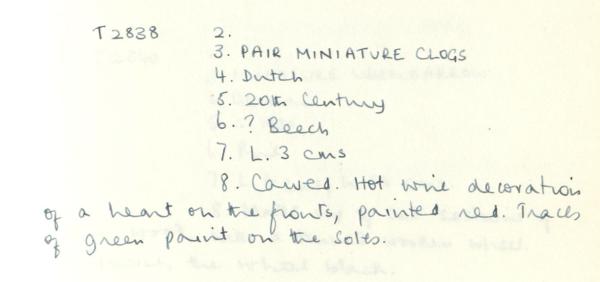 T2838 2.
3. PAIR MINIATURE CLOGS
4. Dutch
5. 20th Century
6. ? Beech
7. L. 3 cms
8. Carved. Hot wire decoration
of a heart on the fronts, painted red. Traces
of green paint on the soles.